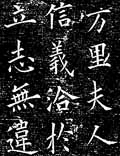 方里夫人
信義洽於
立志無違